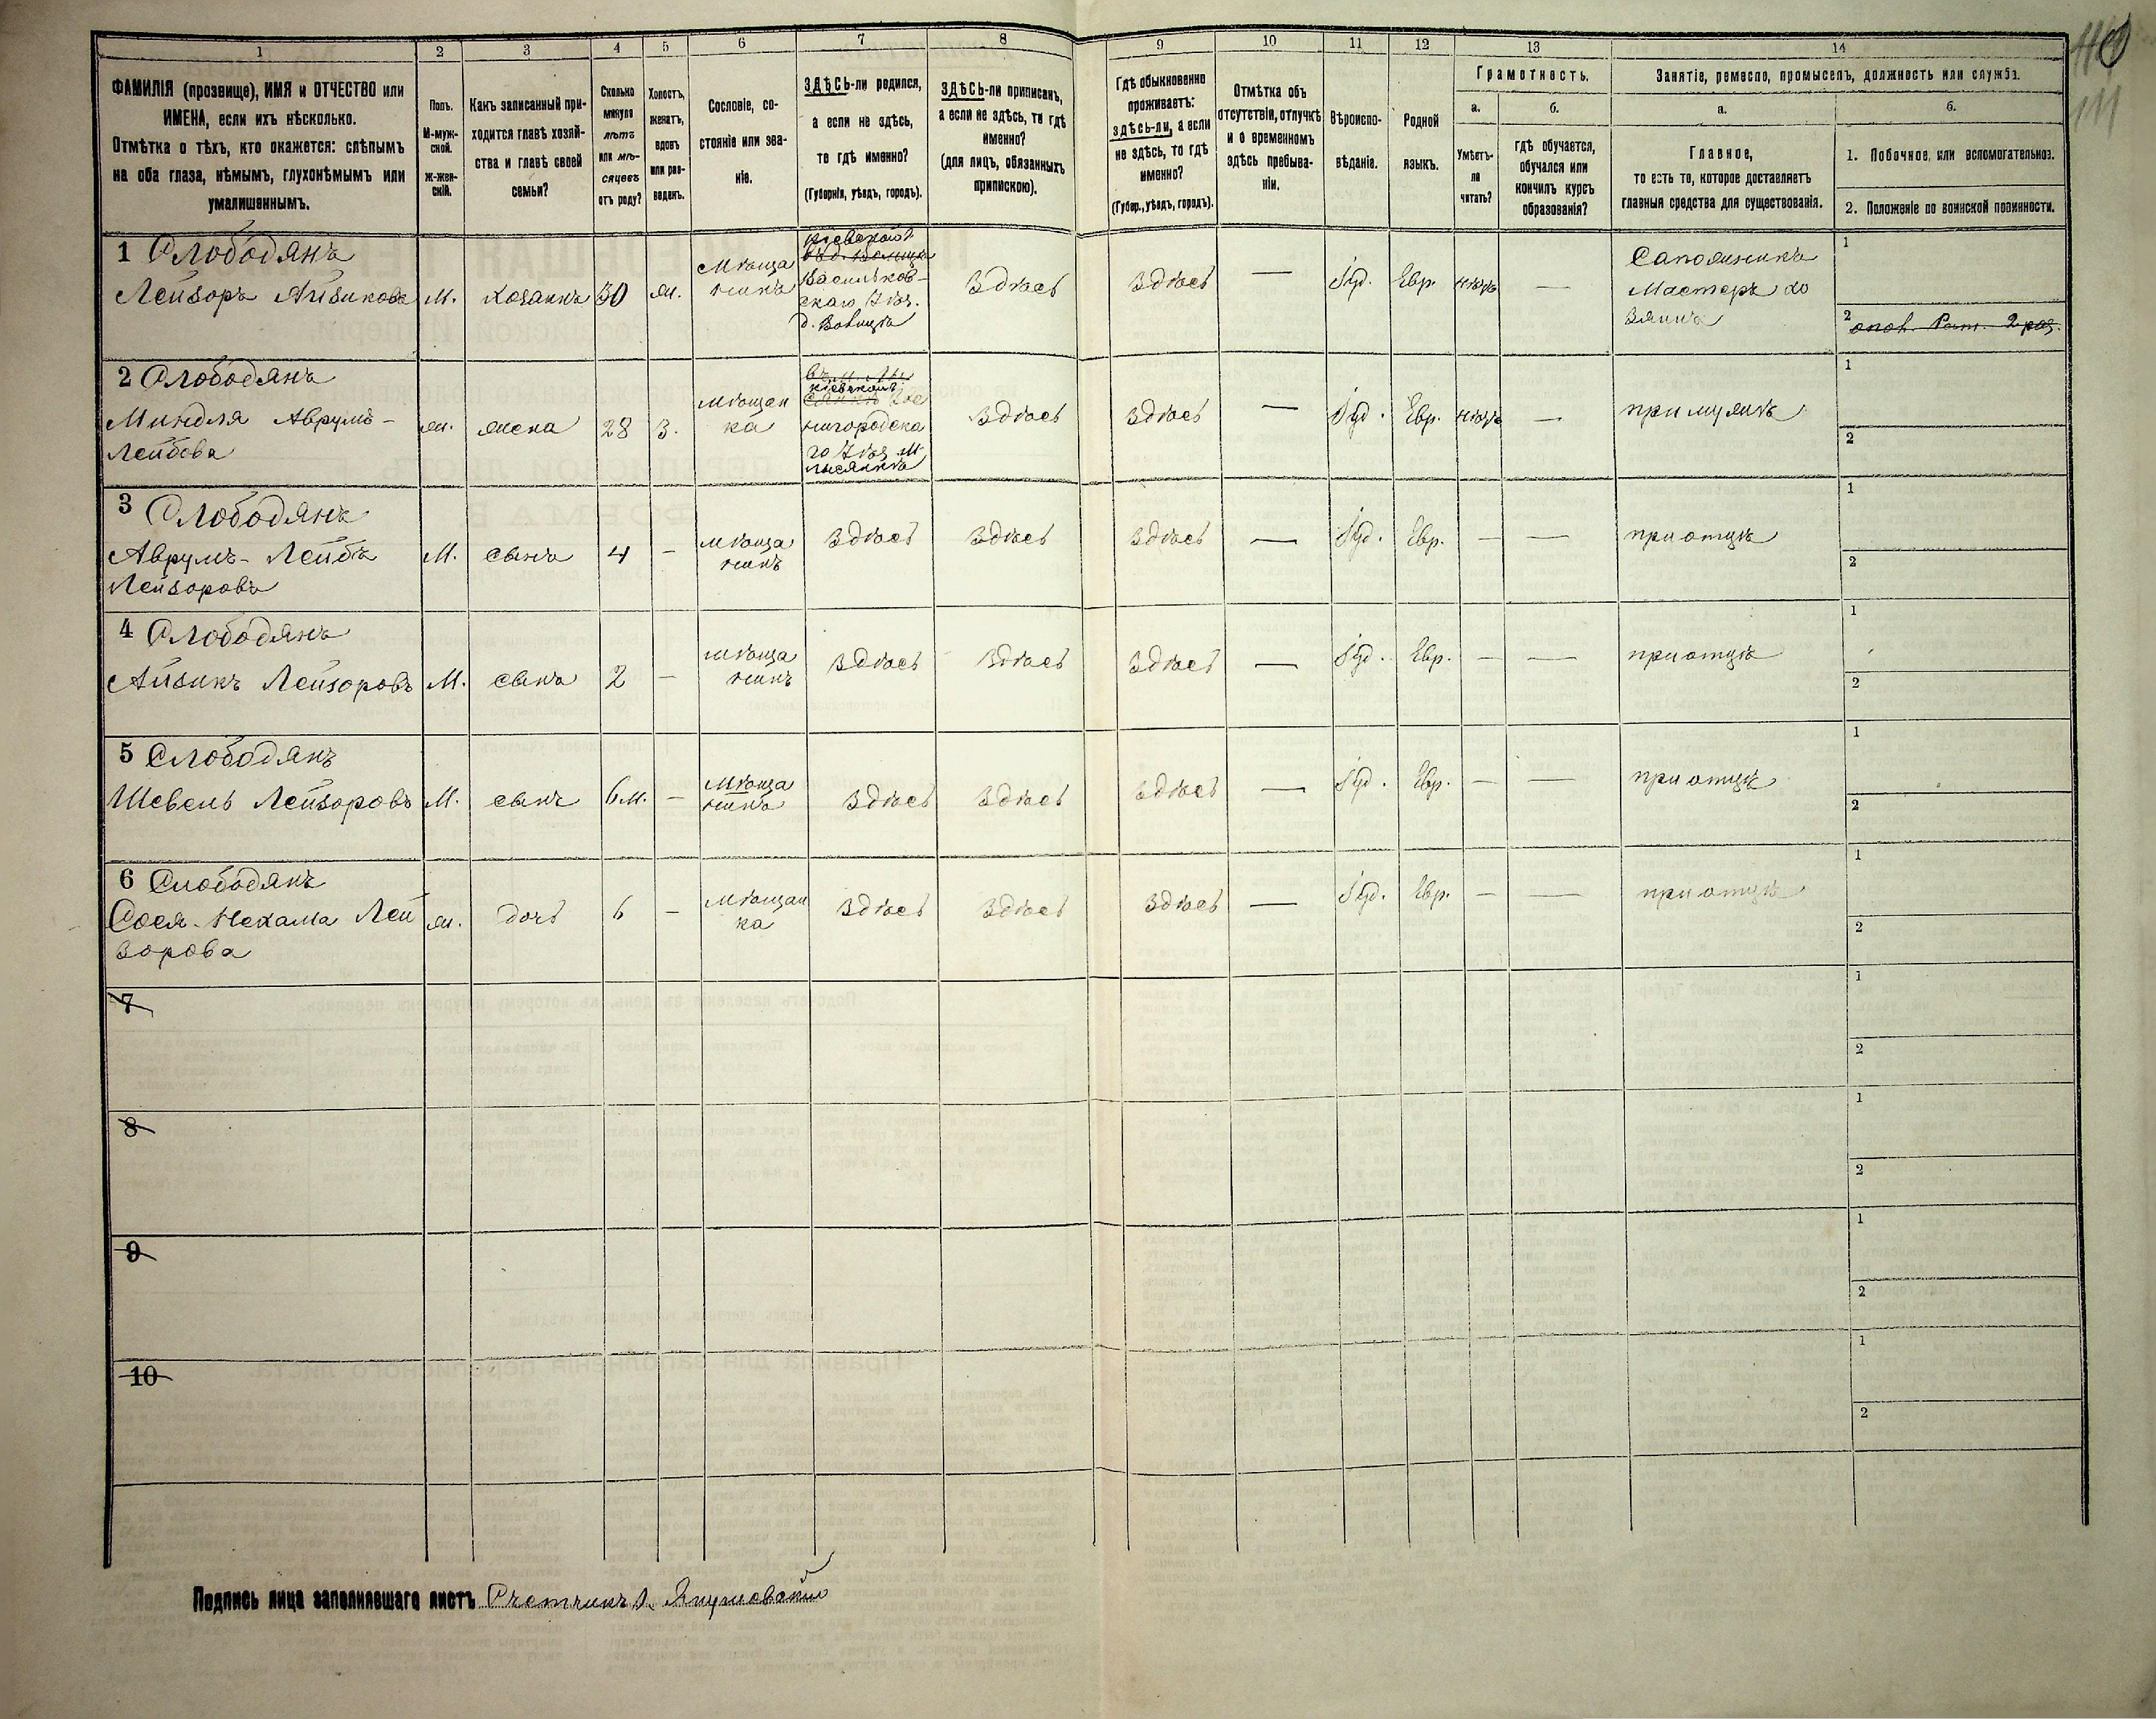 1 2 3 4 5 6 7 8 9 10 11 12 13 14
ФАМИЛІЯ (прозвище), ИМЯ и ОТЧЕСТВО или
ИМЕНА, если ихъ нѣсколько.
Отмѣтка о тѣхъ, кто окажется: слѣпымъ
на оба глаза, нѣмымъ, глухонѣмымъ или
умалишеннымъ.
Полъ.
М-муж-
ской.
Ж-жен-
скій.
Какъ записанный при-
ходится главѣ хозяй-
ства и главѣ своей
семьи?
Сколько
минуло
лѣтъ
или мѣ-
сяцевъ
отъ роду?
Холостъ,
женатъ,
вдовъ
или раз-
веденъ.
Сословіе, со-
стояніе или зва-
ніе.
ЗДѢСЬ-ли родился,
а если не здѣсь,
то гдѣ именно?
(Губернія, уѣздъ, городъ).
ЗДѢСЬ-ли приписанъ,
а если не здѣсь, то гдѣ
именно?
(для лицъ, обязанныхъ
припискою).
Гдѣ обыкновенно
проживаетъ:
здѣсь-ли, а если
не здѣсь, то гдѣ
именно?
(Губер., уѣздъ, городъ).
Отмѣтка объ
отсутствіи, отлучкѣ
и о временномъ
здѣсь пребыва-
ніи.
Вѣроиспо-
вѣданіе.
Родной
языкъ.
Грамотность.
а.
Умѣетъ-
ли
читать?
б.
гдѣ обучается,
обучался или
кончилъ курсъ
образованія?
Занятіе, ремесло, промыселъ, должность или служба.
а.
Главное,
то есть то, которое доставляетъ
главныя средства для существованія.
б.
1. Побочное или вспомогательное.
2. Положеніе по воинской повинности.
1 Слободянъ
Лейзоръ Айзиковъ
М.
хозяинъ
30
ж.
мѣща
нинъ
Кіевской г.
Васильков-
скаго уѣз.
здѣсь
здѣсь
—
Іуд.
Евр.
нѣтъ
—
Сапожникъ
Мастеръ хо
зяинъ
1
2 2 раз.
2 Слободянъ
Миндля Аврумъ-
Лейбова
ж.
жена
28
З.
мѣщан
ка
кіевской г.
нигородска
го уѣз. м.
Лысянка
здѣсь
здѣсь
—
Іуд.
Евр.
нѣтъ
—
при мужѣ
1
2
3 Слободянъ
Аврумъ-Лейбъ
Лейзоровъ
М.
сынъ
4
—
мѣща
нинъ
здѣсь
здѣсь
здѣсь
—
Іуд.
Евр.
—
—
при отцѣ
1
2
4 Слободянъ
Айзикъ Лейзоровъ
М.
сынъ
2
—
мѣща
нинъ
здѣсь
здѣсь
здѣсь
—
Іуд.
Евр.
—
—
при отцѣ
1
2
5 Слободянъ
Шевель Лейзоровъ
М.
сынъ
6 м.
—
мѣща
нинъ
здѣсь
здѣсь
здѣсь
—
Іуд.
Евр.
—
—
при отцѣ
1
2
6 Слободянъ
Сося-Нехама Лей
зорова
ж.
дочь
6
—
мѣщан
ка
здѣсь
здѣсь
здѣсь
—
Іуд.
Евр.
—
—
при отцѣ
1
2
7
1
2
8
1
2
9
1
2
10
1
2
Подпись лица заполнявшаго листъ Счетчикъ